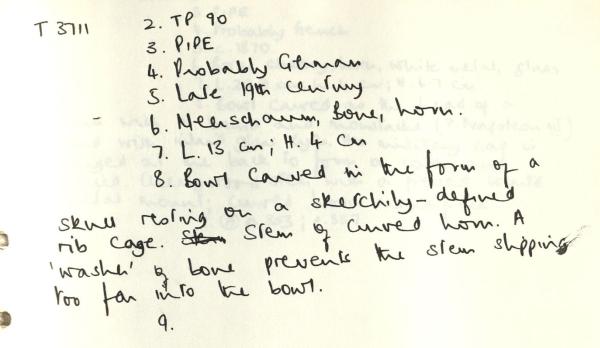 T 3711 2. TP 90
3. PIPE
4. Probably German
5. Late 19th century
6. Meerschaum, bone, horn.
7. L. 13 cm; H. 4 cm
8. Bowl carved in the form of a
skull resting on a sketchily-defined
rib cage. Stem Stem of curved horn. A
'washer' of bone prevents the stem slipping
too far into the bowl.
9.